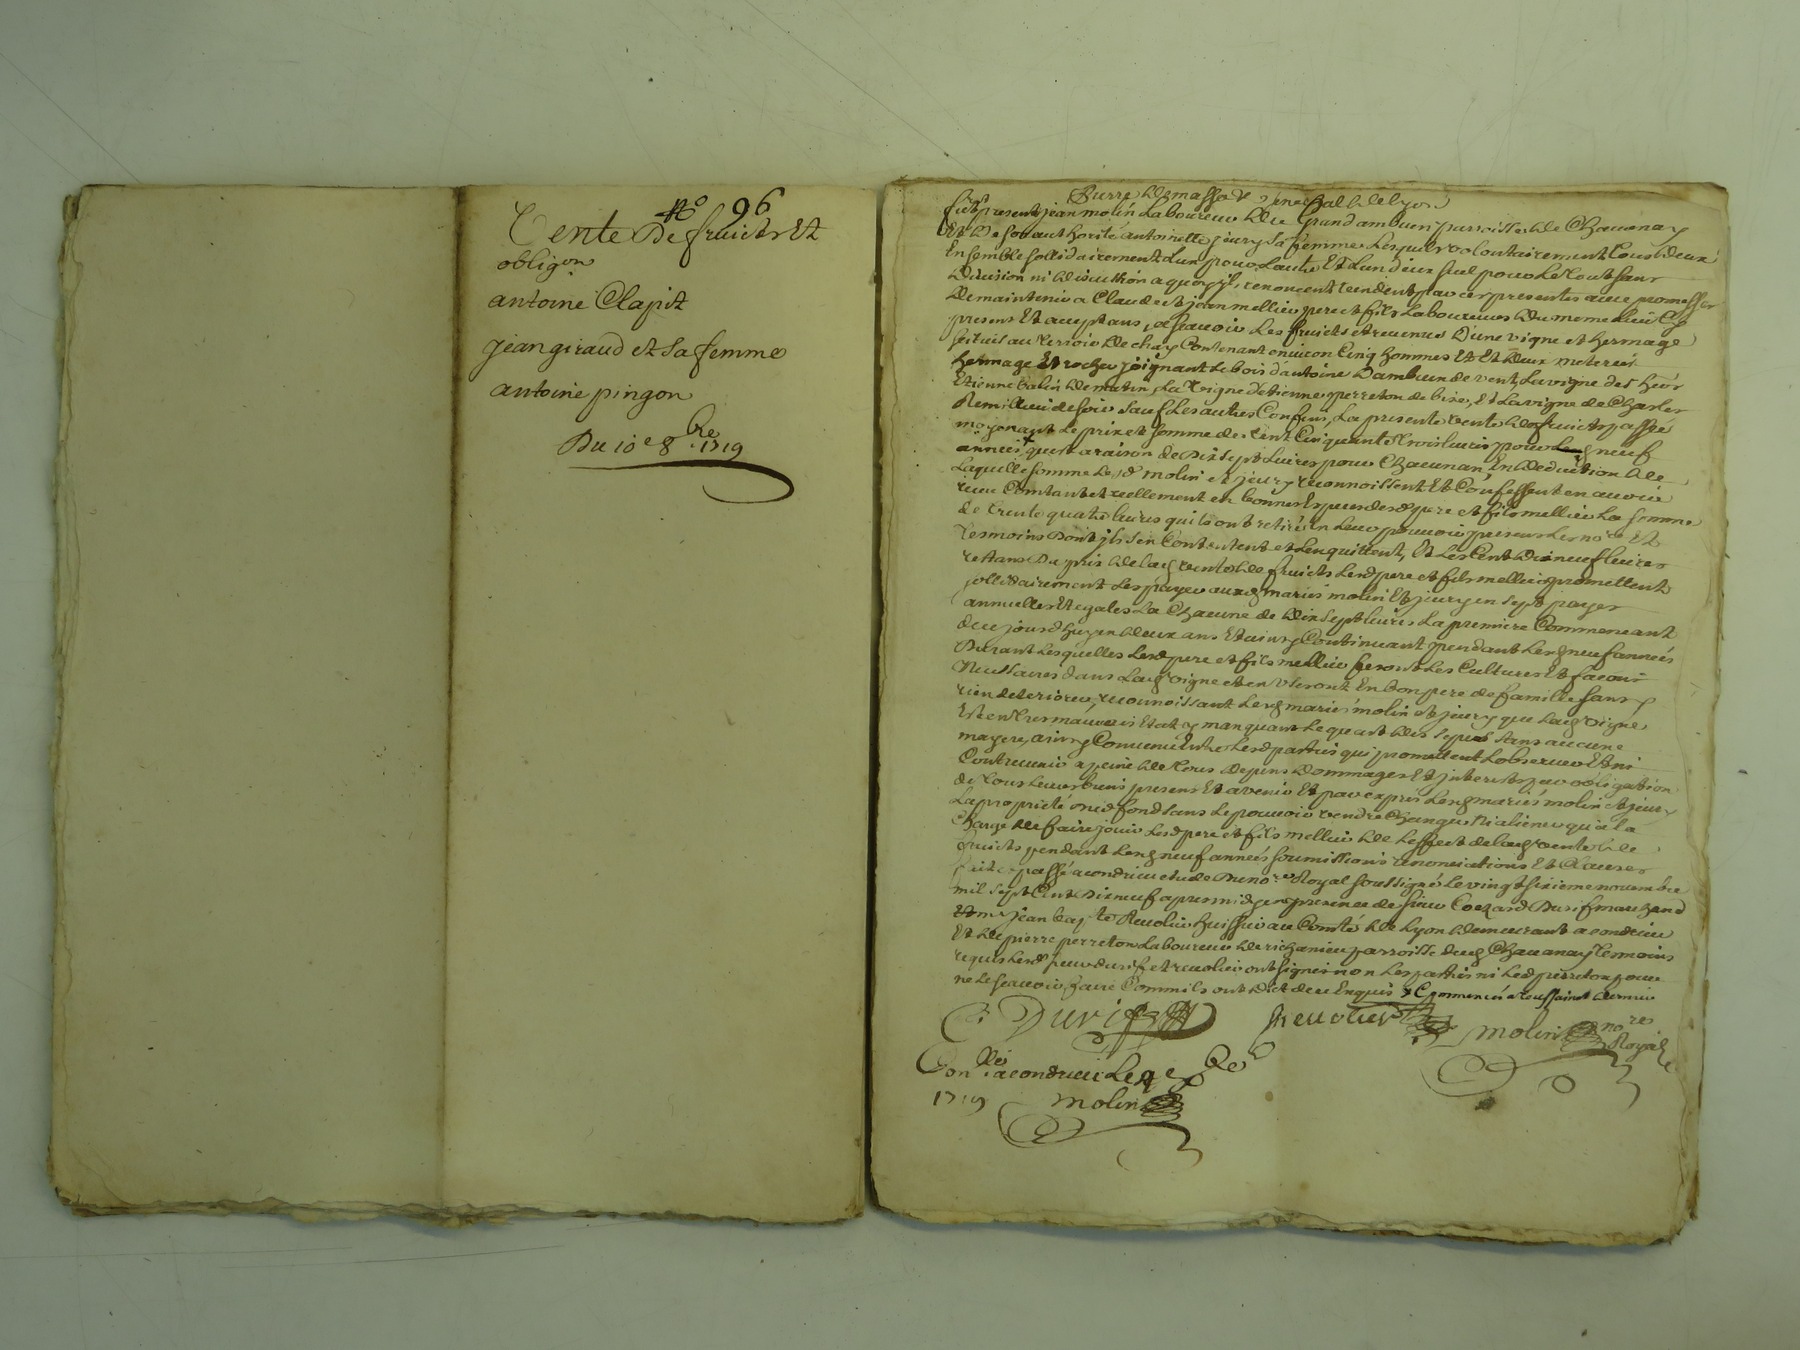 N° 96
Vente De fruicts Et
obligon
antoine Clapit
jean giraud et sa femme
antoine pingon
Du 10e 8bre 1719
furent presents jean molin Laboureur de Grand ambuen parroisse de Chavanay
Et de son authorité antoinette jeury sa femme Lesquels volontairement tous deux
Ensemble sollidairement Lun pour Lautre Et Lun deux seul pour Le tout sans
Division ni discution a quoy ils renoncent vendent par ces presentes avec promesse
De maintenir a Claude et jean mellier pere et fils Laboureurs du meme Lieu Cy
presens Et acceptans, a scavoir Les fruicts et revenus D'une vigne et hermage
scituis au terroir De chay Contenant environ Cinq hommes Et Deux meterés
hermage Et rocher joignant Le bois d'antoine Dambuen de vent, La vigne des heirs
Etienne valin de matin, La vigne d'etienne perreton de bise, Et La vigne de Charles
Remillieu de soir sauf Les autres Confins, La presente vente de fruicts passée
moyenant Le prix et somme de Cent Cinquante trois Livres pour Les neuf
années, quest a raison de Dix sept Livres pour Chacunan, En Deduction de
Laquelle somme Lesd molin et jeury reconnoissent Et Confessent en avoir
receu Comtant et reellement en bonnes Especes desd pere et fils mellier La somme
de trente quatre Livres qu'ils ont retiré en Leur pouvoir presens Les nore Et
tesmoins Dont ils s'en Contentent et Len quittent, Et Les Cent Dixneuf Livres
restans Du prix de Lad vente de fruicts Lesd pere et fils mellier promettent
sollidairement Les payer auxd mariés molin Et jeury en sept payes
annuelles Et egales La Chacune de dix sept Livres La premiere Commencant
de ce jourd'huy en deux ans Et ainsy Continuant pendant Lesd neuf années
Durant Lesquelles Lesd pere et fils mellier feront Les Cultures Et facons
Necessaires dans Lad vigne et en Useront En bon pere de famille sans y
rien deteriorer, reconnoissant Lesd mariés molin et jeury que Lad vigne
Est en tres mauvais Etat y manquant Le quart des seps sans aucune
mayere, ainsy Convenu Entre Lesd parties qui promettent Lobserver Et ni
Contrevenir a peine de tous depens dommages Et interets par obligation
de tous Leurs biens presens Et avenir Et par expres Lesd mariés molin et jeury
La proprieté dud fond sans Le pouvoir vendre Changer ni aliener qu'a La
Charge de faire jouir Lesd pere et fils mellier de Leffect de Lad vente de
fruicts pendant Lesd neuf années soumissions renonciations Et Clauses
faite & passé a condrieu etude Du nore Royal soussigné Le vingt sixieme novembre
mil sept Cent Dixneuf apres midy en presence de sieur Durif marchand
Et me jean bapte Revolier huissier au Comté de Lyon demeurant a condrieu
Et de pierre perreton Laboureur de richanieu parroisse dud Chavanay tesmoins
requis Lesd sieur durif et revolier ont signé non Les parties ni Led perreton pour
ne Le scavoir faire Comm'ils ont Dict de ce Enquis x Commencée a toussaint dernier
C. Durif
Revolier
molin nore
Royal
Conllé a condrieu Le 9e xbre
1719 molin